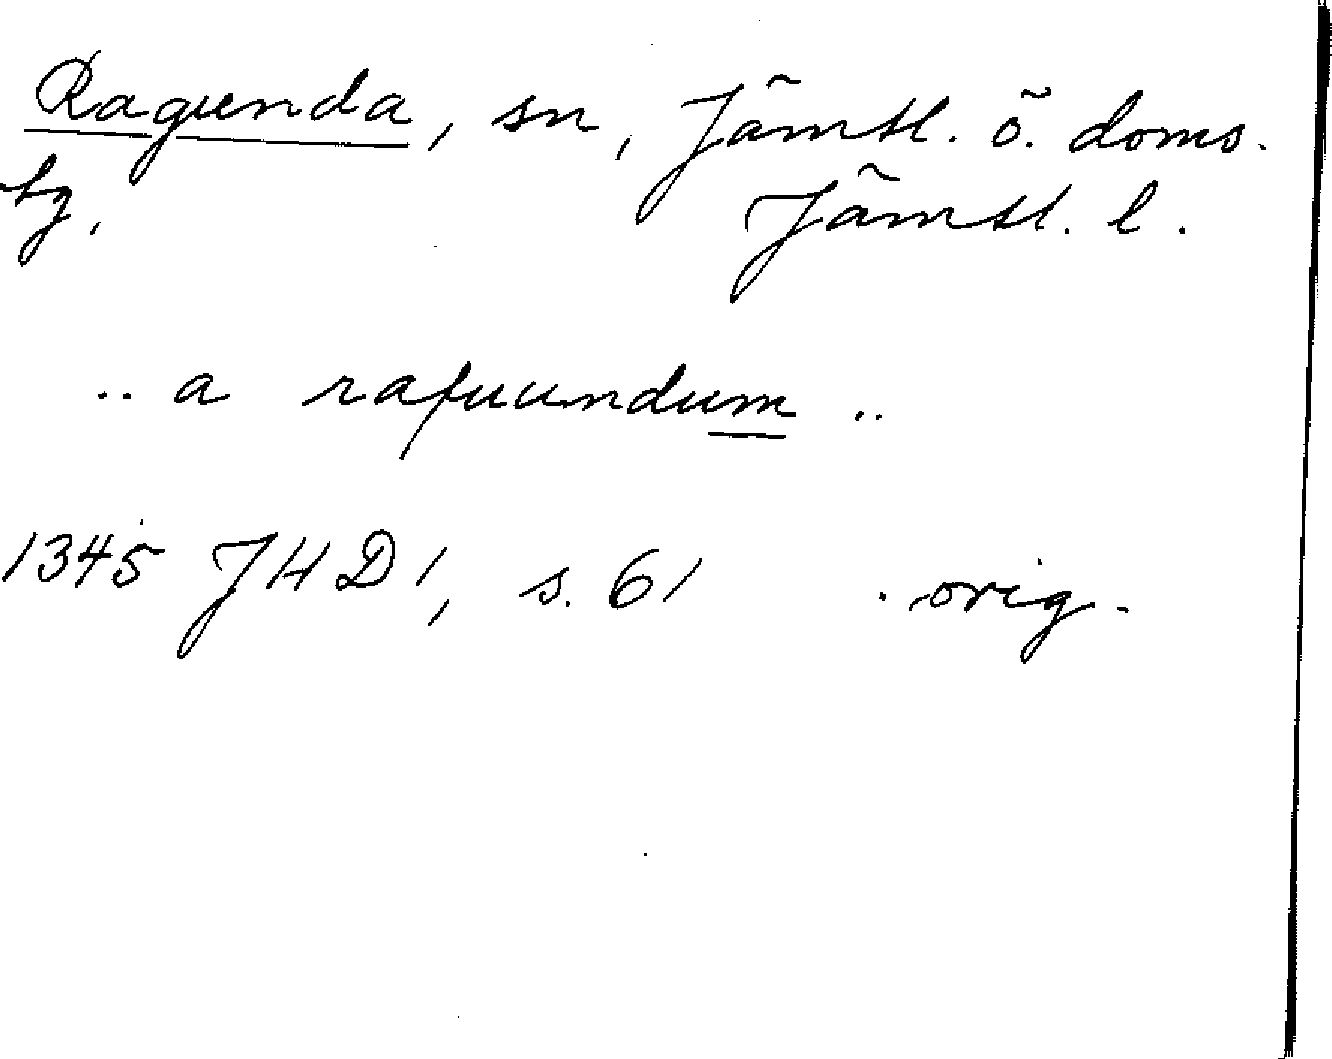 Ragunda, sn, Jämtl. ö. doms.
tg, Jämtl. l.
.. a rafuundum ..
1345 JHD 1, s. 61 . orig.